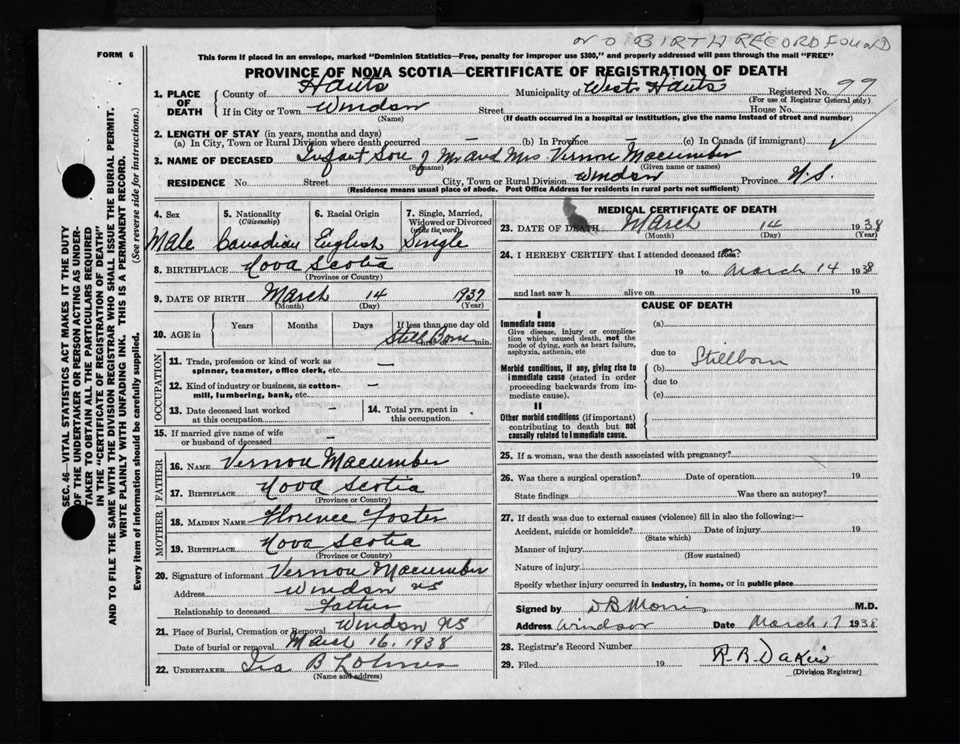 NO BIRTH RECORD FOUND
FORM 6
This form if placed in an envelope, marked "Dominion Statistics—Free, penalty for improper use $300," and properly addressed will pass through the mail "FREE"
PROVINCE OF NOVA SCOTIA—CERTIFICATE OF REGISTRATION OF DEATH
1. PLACE OF DEATH
County of Hants Municipality of West Hants Registered No. 99
(For use of Registrar General only)
If in City or Town Windsor Street House No.
(Name) (If death occurred in a hospital or institution, give the name instead of street and number)
2. LENGTH OF STAY (in years, months and days)
(a) In City, Town or Rural Division where death occurred — (b) In Province — (c) In Canada (if immigrant)
3. NAME OF DECEASED Infant Son of Mr and Mrs. Vernon Macumber
(Surname) (Given name or names)
RESIDENCE No. Street City, Town or Rural Division Windsor Province N.S.
(Residence means usual place of abode. Post Office Address for residents in rural parts not sufficient)
SEC. 46—VITAL STATISTICS ACT MAKES IT THE DUTY
OF THE UNDERTAKER OR PERSON ACTING AS UNDER-
TAKER TO OBTAIN ALL THE PARTICULARS REQUIRED
IN THE "CERTIFICATE OF REGISTRATION OF DEATH"
AND TO FILE THE SAME WITH THE DIVISION REGISTRAR WHO SHALL ISSUE THE BURIAL PERMIT.
WRITE PLAINLY WITH UNFADING INK. THIS IS A PERMANENT RECORD.
Every item of information should be carefully supplied. (See reverse side for instructions.)
4. Sex
Male
5. Nationality
(Citizenship)
Canadian
6. Racial Origin
English
7. Single, Married, Widowed or Divorced
(write the word)
Single
8. BIRTHPLACE Nova Scotia
(Province or Country)
9. DATE OF BIRTH March 14 1937
(Month) (Day) (Year)
10. AGE in Years Months Days If less than one day old
Still Born
hrs. or min.
OCCUPATION
11. Trade, profession or kind of work as
spinner, teamster, office clerk, etc. —
12. Kind of industry or business, as cotton-
mill, lumbering, bank, etc. —
13. Date deceased last worked
at this occupation —
14. Total yrs. spent in
this occupation —
15. If married give name of wife
or husband of deceased —
FATHER
16. NAME Vernon Macumber
17. BIRTHPLACE Nova Scotia
(Province or Country)
MOTHER
18. MAIDEN NAME Florence Foster
19. BIRTHPLACE Nova Scotia
(Province or Country)
20. Signature of informant Vernon Macumber
Address Windsor NS
Relationship to deceased Father
21. Place of Burial, Cremation or Removal Windsor NS
Date of burial or removal March 16, 1938
22. UNDERTAKER Ira B
(Name and address)
MEDICAL CERTIFICATE OF DEATH
23. DATE OF DEATH March 14 1938
(Month) (Day) (Year)
24. I HEREBY CERTIFY that I attended deceased from
on
19 to March 14 1938
and last saw h alive on 19
CAUSE OF DEATH
I
Immediate cause
Give disease, injury or complica-
tion which caused death, not the
mode of dying, such as heart failure,
asphyxia, asthenia, etc
(a)
due to
Morbid conditions, if any, giving rise to
immediate cause (stated in order
proceeding backwards from im-
mediate cause).
(b) Stillborn
due to
(c)
II
Other morbid conditions (if important)
contributing to death but not
causally related to immediate cause.
25. If a woman, was the death associated with pregnancy?
26. Was there a surgical operation? Date of operation 19
State findings Was there an autopsy?
27. If death was due to external causes (violence) fill in also the following:—
Accident, suicide or homicide? Date of injury 19
(State which)
Manner of injury
(How sustained)
Nature of injury
Specify whether injury occurred in industry, in home, or in public place
Signed by D B Morris M.D.
Address Windsor Date March 17 1938
28. Registrar's Record Number
29. Filed 19 R. B. Dakin
(Division Registrar)